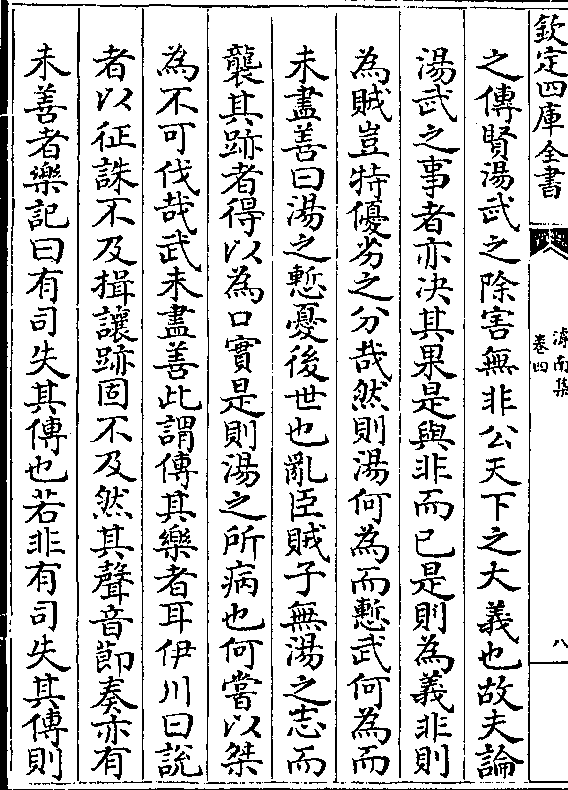 欽定四庫全書
滹南集
卷四
八
之傳賢湯武之除害無非公天下之大義也故夫論
湯武之事者亦决其果是與非而已是則為義非則
為賊豈特優劣之分哉然則湯何為而慙武何為而
未盡善曰湯之慙憂後世也亂臣賊子無湯之志而
襲其跡者得以為口實是則湯之所病也何嘗以桀
為不可伐哉武未盡善此謂傳其樂者耳伊川曰説
者以征誅不及揖讓跡固不及然其聲音節奏亦有
未善者樂記曰有司失其傳也若非有司失其傳則